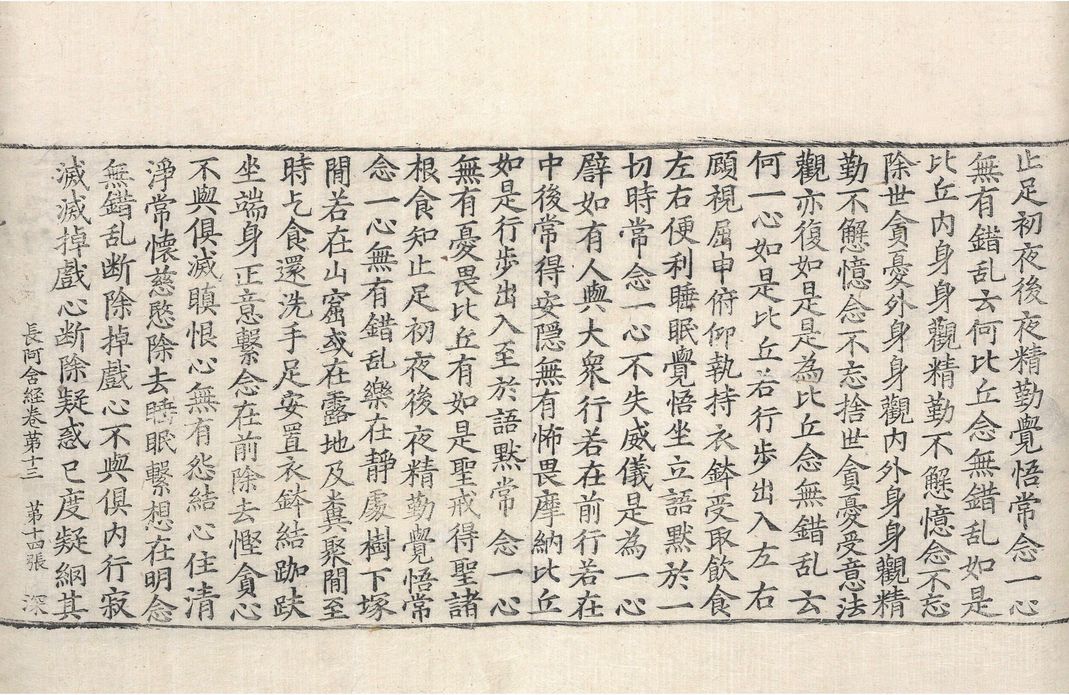 止足初夜後夜精勤覺悟常念一心
無有錯乱云何比丘念無錯乱如是
比丘内身身觀精勤不懈憶念不忘
除世貪憂外身身觀内外身身觀精
勤不懈憶念不忘捨世貪憂受意法
觀亦復如是是為比丘念無錯乱云
何一心如是比丘若行步出入左右
顧視屈申俯仰執持衣鉢受取飲食
左右便利睡眠覺悟坐立語默於一
切時常念一心不失威儀是為一心
譬如有人與大衆行若在前行若在
中後常得安隱無有怖畏摩納比丘
如是行步出入至於語默常念一心
無有憂畏比丘有如是聖戒得聖諸
根食知止足初夜後夜精勤覺悟常
念一心無有錯乱樂在靜處樹下塚
間若在山窟或在露地及糞聚間至
時乞食還洗手足安置衣鉢結跏趺
坐端身正意繫念在前除去慳貪心
不與俱滅瞋恨心無有怨結心住清
淨常懷慈愍除去睡眠繫想在明念
無錯乱断除掉戲心不與俱内行寂
滅滅掉戲心断除疑惑已度疑網其
長阿含経卷苐十三 苐十四張 深